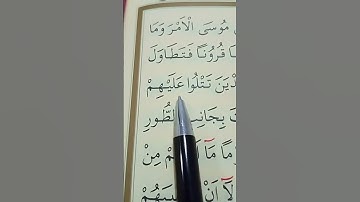 مُوسَى الْاَمْرَ وَمَا
قُرُونًا فَتَطَاوَلَ
تَتْلُوا عَلَيْهِمْ
بِجَانِبِ الطُّورِ
مَٓا مِنْ